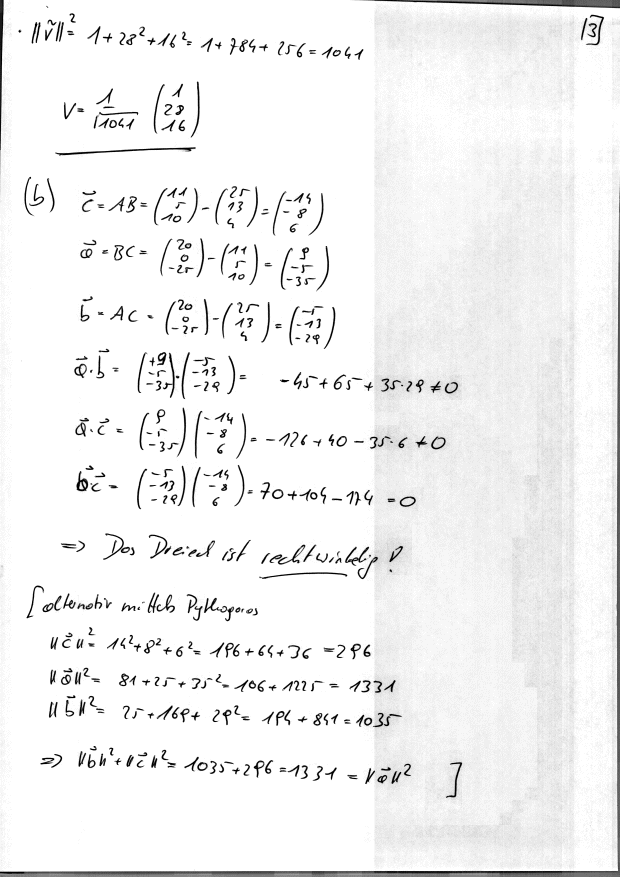 13
· ||ṽ||² = 1+28²+16² = 1+784+256 = 1041
V = 1/√1041 (1 28 16)
(b) c⃗ = AB = (11 5 10) - (25 13 4) = (-14 -8 6)
a⃗ = BC = (20 0 -25) - (11 5 10) = (9 -5 -35)
b⃗ = AC = (20 0 -25) - (25 13 4) = (-5 -13 -29)
a⃗·b⃗ = (+9 -5 -35)·(-5 -13 -29) = -45+65+35·29 ≠ 0
a⃗·c⃗ = (9 -5 -35)(-14 -8 6) = -126+40-35·6 ≠ 0
b⃗·c⃗ = (-5 -13 -29)(-14 -8 6) = 70+104-174 = 0
=> Das Dreieck ist rechtwinkelig!
[alternativ mittels Pythagoras
||c⃗||² = 14²+8²+6² = 196+64+36 = 296
||a⃗||² = 81+25+35² = 106+1225 = 1331
||b⃗||² = 25+169+29² = 194+841 = 1035
=> ||b⃗||²+||c⃗||² = 1035+296 = 1331 = ||a⃗||² ]